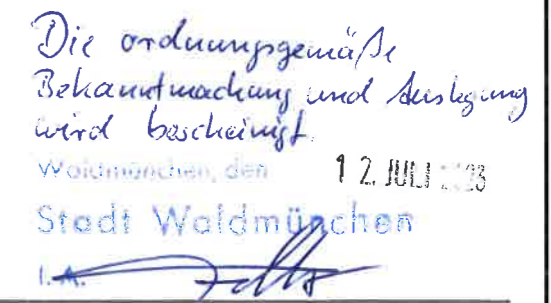 Die ordnungsgemäße
Bekanntmachung und Auslegung
wird bescheinigt.
Waldmünchen, den 12. JULI 2023
Stadt Waldmünchen
I. A.